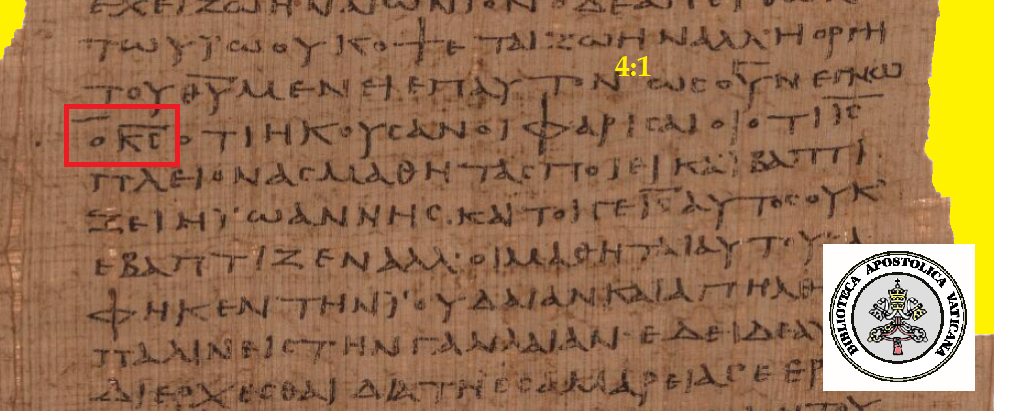 ΕΧΕΙΖΩΗΝΑΙΩΝΙΟΝΟΔΕΑΠΕΙ
ΤΩΥΙΩΟΥΚΟΨΕΤΑΙΖΩΗΝΑΛΛ'ΗΟΡΓΗ
4:1
ΤΟΥΘ̅Υ̅ΜΕΝΕΙΕΠΑΥΤΟΝ·ΩϹΟΥΝΕΓΝΩ
ΟΚ̅Ϲ̅ΟΤΙΗΚΟΥϹΑΝΟΙΦΑΡΙϹΑΙΟΙΟΤΙΙ̅Ϲ̅
ΠΛΕΙΟΝΑϹΜΑΘΗΤΑϹΠΟΙΕΙΚΑΙΒΑΠΤΙ
ΖΕΙΗΪΩΑΝΝΗϹ·ΚΑΙΤΟΙΓΕΙ̅Ϲ̅ΑΥΤΟϹΟΥΚ'
ΕΒΑΠΤΙΖΕΝΑΛΛ'ΟΙΜΑΘΗΤΑΙΑΥΤΟΥ·Α
ΦΗΚΕΝΤΗΝΪΟΥΔΑΙΑΝΚΑΙΑΠΗΛΘ
ΠΑΛΙΝΕΙϹΤΗΝΓΑΛΙΛΑΙΑΝ·ΕΔΕΙΔΕΑΥ
ΔΙΕΡΧΕϹΘΑΙΔΙΑΤΗϹϹΑΜΑΡΕΙΑϹΕΡ
ΤΟΥ
BIBLIOTECA APOSTOLICA VATICANA